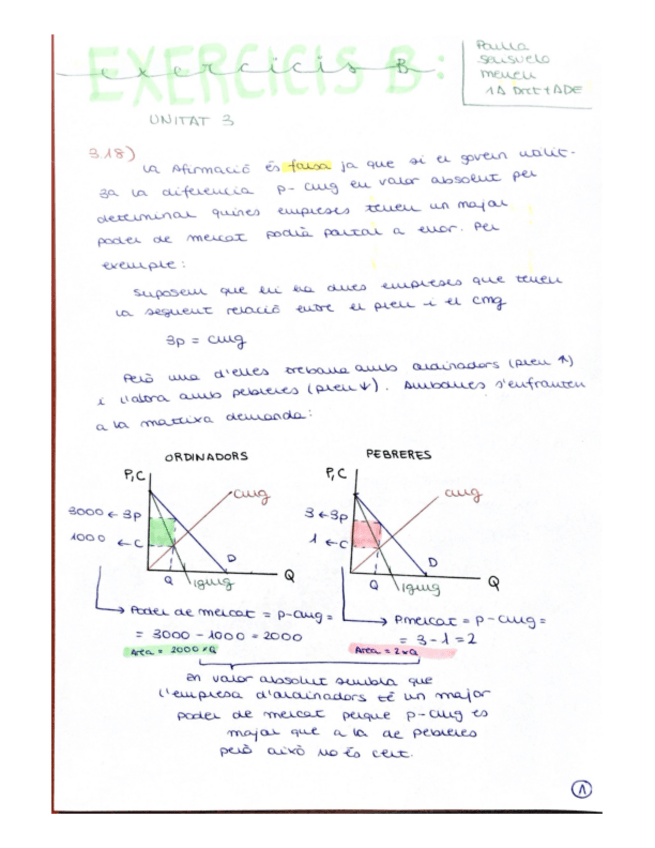 EXERCICIS B:
exercicis B
Paula
sausuelo
meneu
1A Dret + ADE
UNITAT 3
3.18)
La Afirmació és falsa ja que si el govern utilit-
za la diferencia p- cmg en valor absolut per
determinar quines empreses tenen un major
poder de mercat podria portar a error. Per
exemple:
Suposem que hi ha dues empreses que tenen
la següent relació entre el preu i el cmg
3p = cmg
Però una d'elles treballa amb ordinadors (preu ↑)
i l'altra amb pebreres (preu ↓). Ambdues s'enfronten
a la mateixa demanda:
ORDINADORS
P,C
cmg
3000 ← 3p
1000 ← C
D
Q
Q
Igmg
PEBRERES
P,C
cmg
3 ← 3p
1 ← C
D
Q
Q
Igmg
→ Poder de mercat = p-cmg =
= 3000 - 1000 = 2000
Area = 2000 × Q
→ Pmercat = p - cmg =
= 3 - 1 = 2
Area = 2 × Q
En valor absolut sembla que
l'empresa d'ordinadors té un major
poder de mercat perque p-cmg es
major que a la de pebreres
però això no és cert.
1